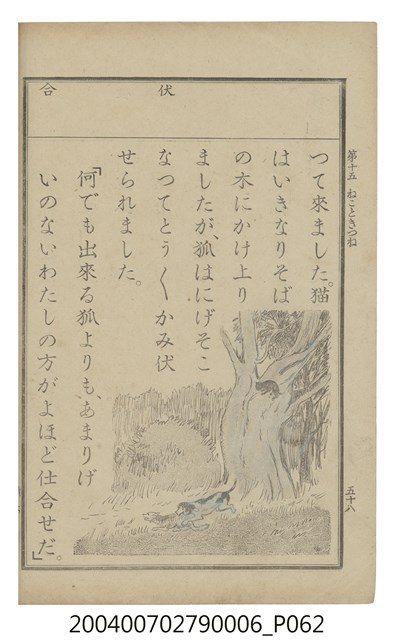 第十五 ねこときつね
五十八
つて來ました。猫
はいきなりそば
の木にかけ上り
ましたが、狐はにげそこ
なつてとう〱かみ伏
せられました。
「何でも出來る狐よりも、あまりげ
いのないわたしの方がよほど仕合せだ。」
伏
合
200400702790006_P062